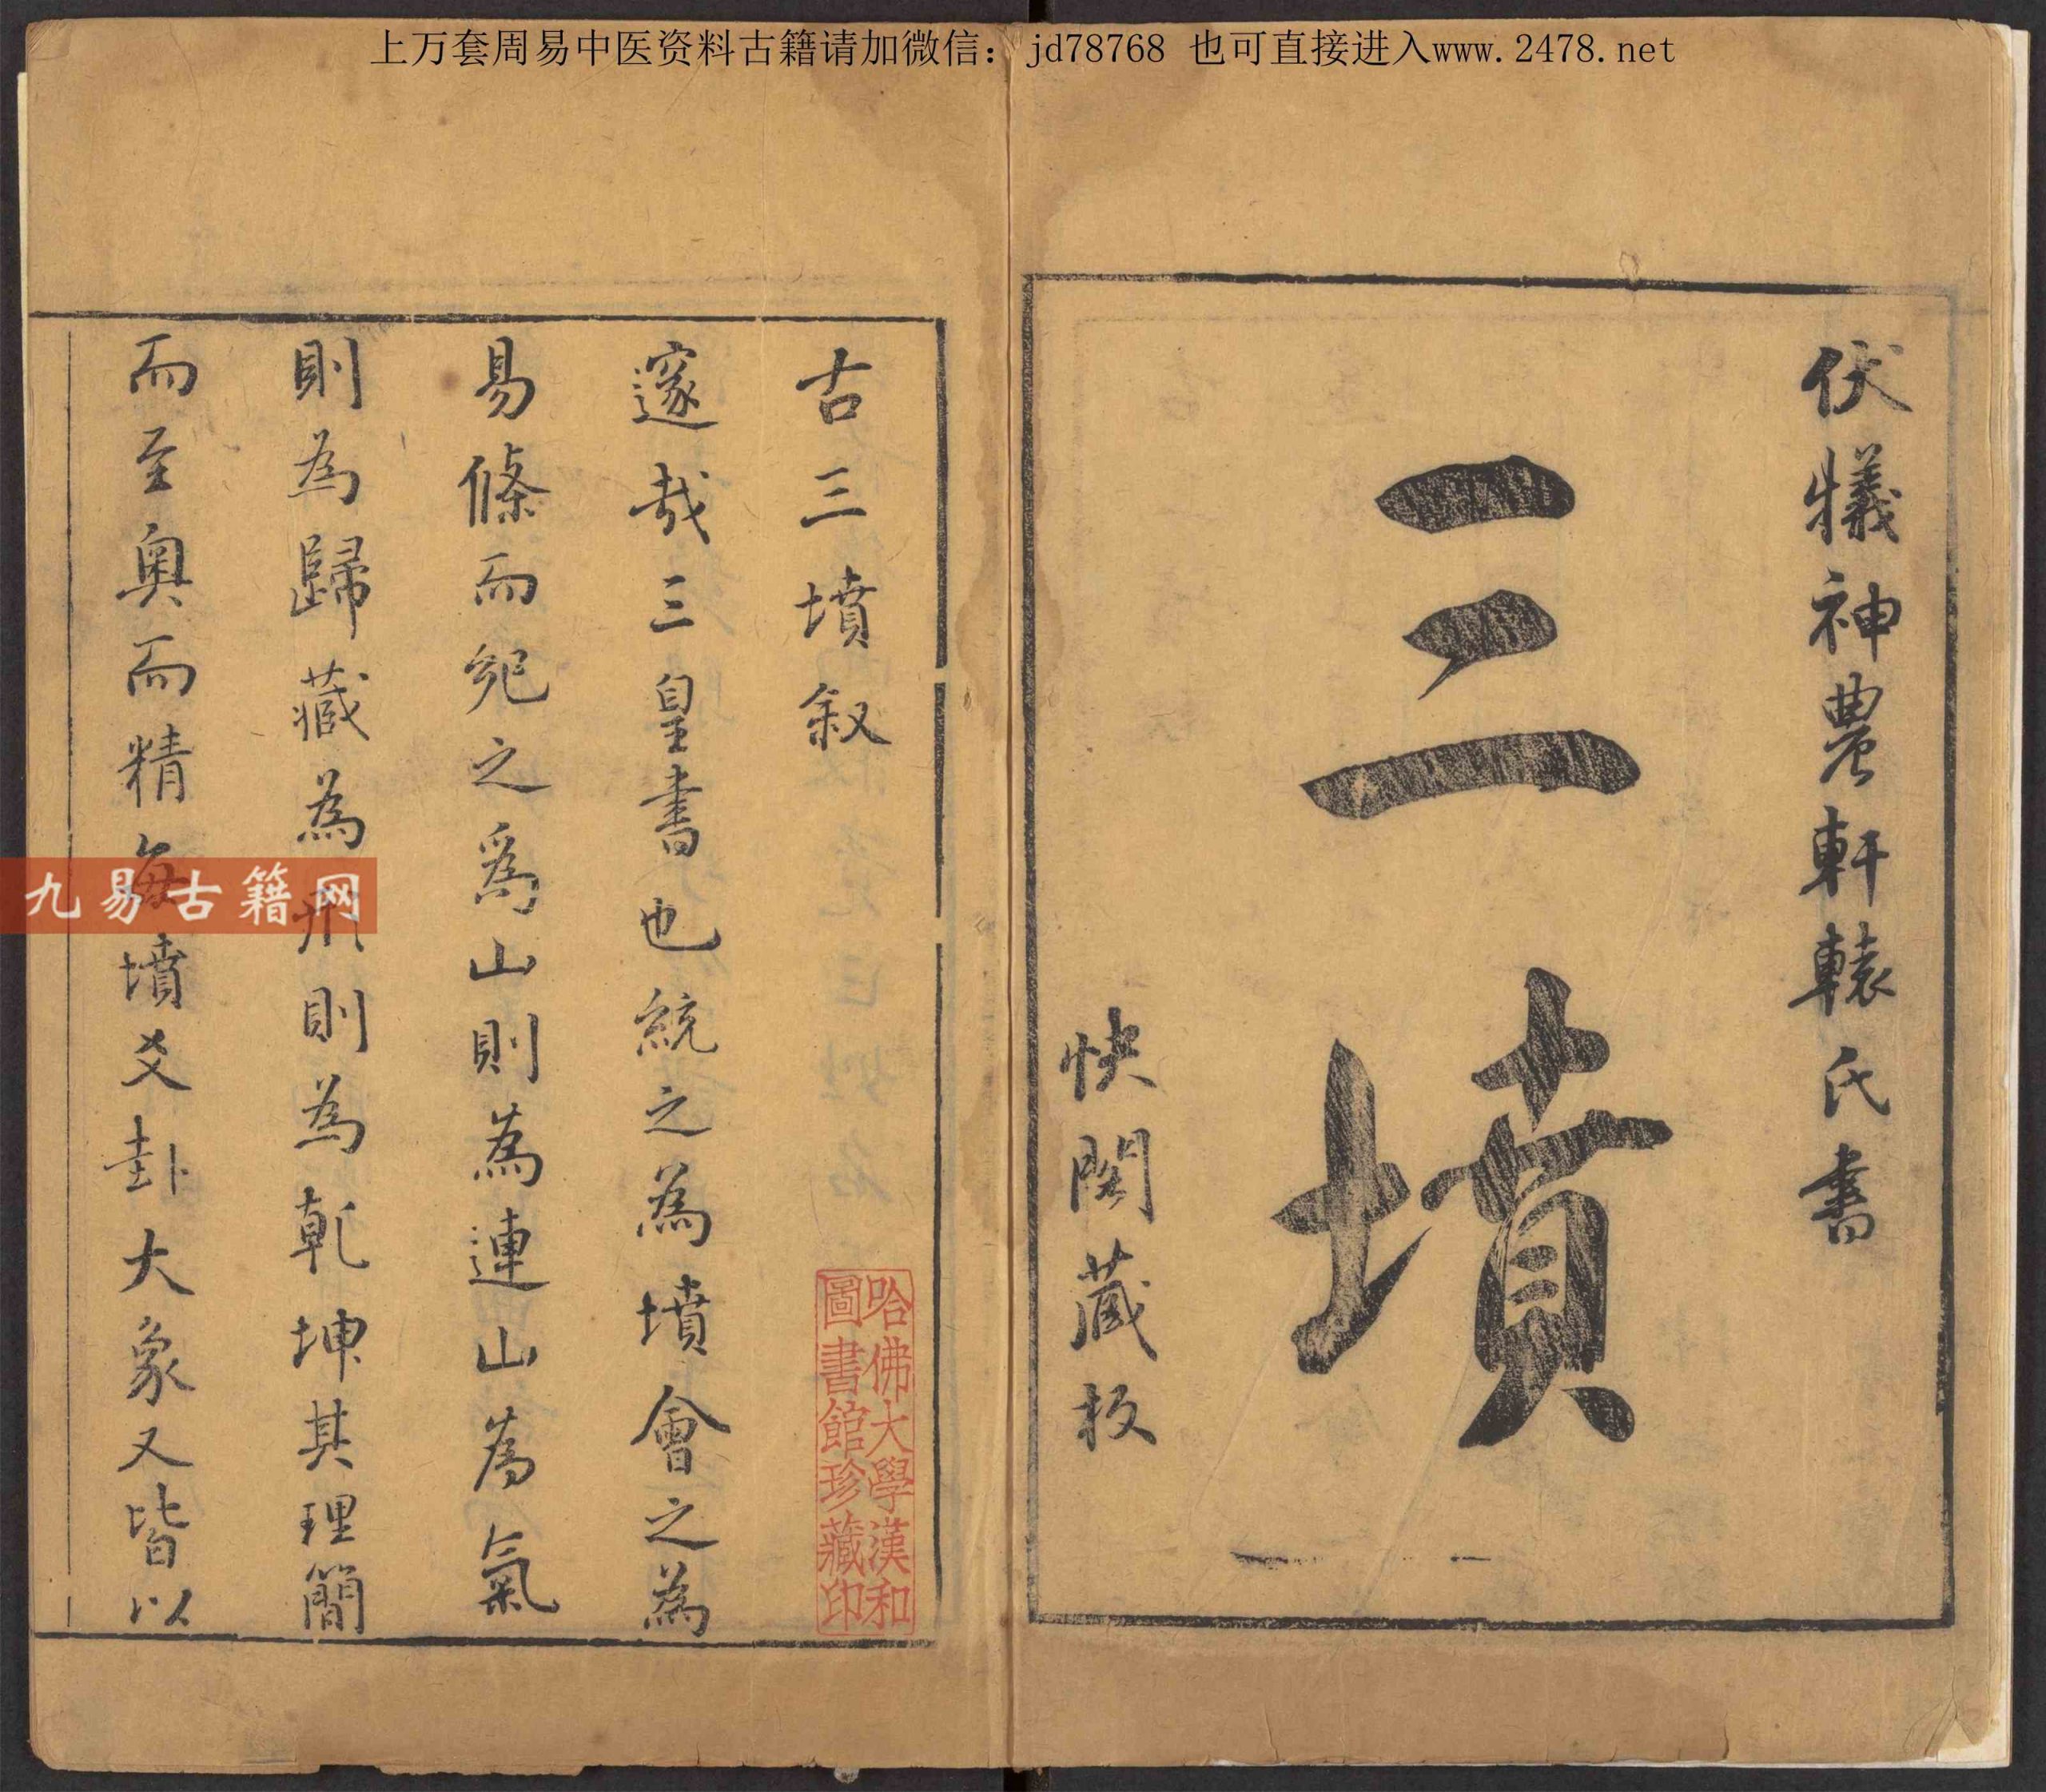 上万套周易中医资料古籍请加微信： jd78768 也可直接进入www.2478.net
伏犠神農軒轅氏書
三墳
快閣藏板
古三墳叙
邃哉三皇書也統之為墳會之為
易條而究之為山則為連山為氣
則為歸藏為形則為乹坤其理簡
而至奧而精每墳爻卦大象又皆以
哈佛大學漢和
圖書館珍藏印
九易古籍网